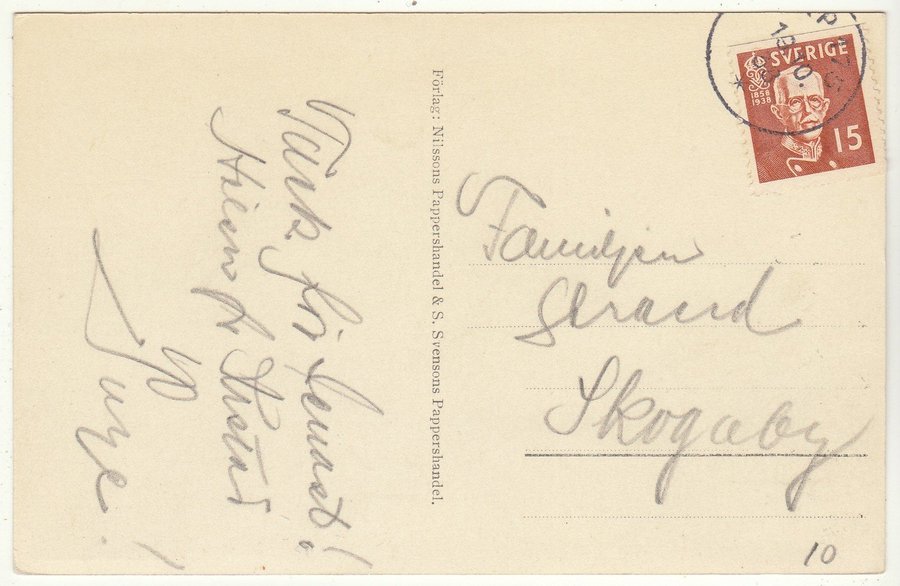 Tack för senast!
Hälsn fr
W
Förlag: Nilssons Pappershandel & S. Svensons Pappershandel.
SVERIGE
1858
1938
15
Familjen
Strand
Skogaby
10